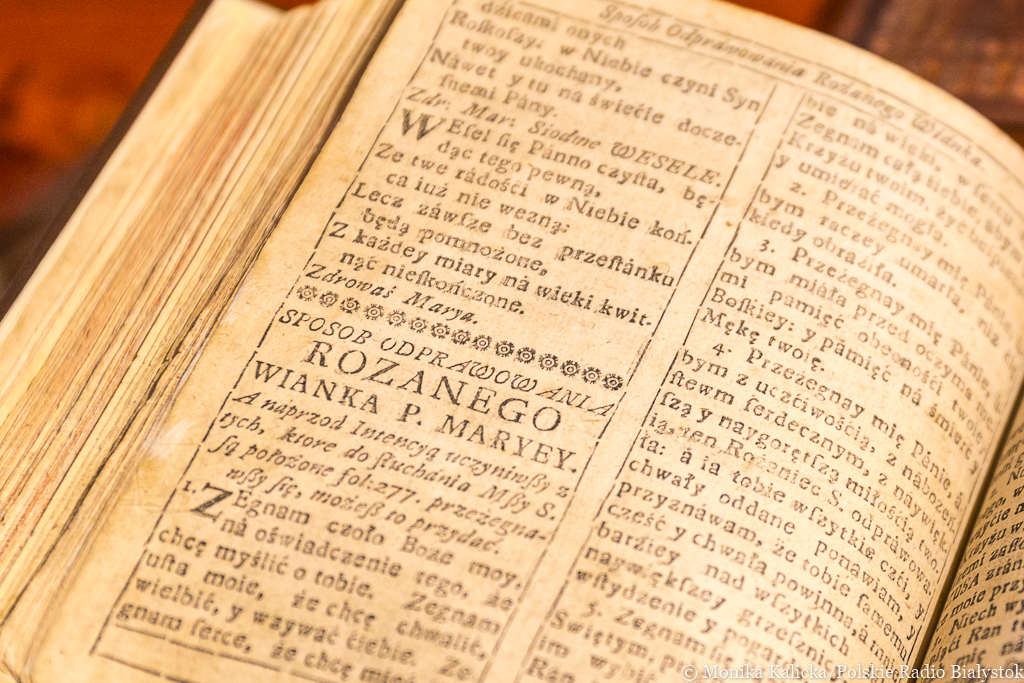 Sposob Odprawowania Rożanego Wianka.
dźicami onych
Roſkoſzy: w Niebie czyni Syn
twoy ukochany,
Náwet y tu ná świećie docze-
ſnemi Pány.
Zdr: Mar: Siodme WESELE.
WEſel ſię Pánno czyſta, bę-
dąc tego pewną,
Ze twe rádośći w Niebie koń-
ca iuż nie wezną:
Lecz záwſze bez przeſtánku
będą pomnożone,
Z káżdey miary ná wieki kwit-
nąć nieſkończone.
Zdrowaś Marya.
SPOSOB ODPRAWOWANIA
ROZANEGO
WIANKA P. MARYEY.
A naprzod Intencyą uczyniwſzy z
tych, ktore do ſłuchania Mſzy S.
ſą położone fol: 277. przeżegna-
wſzy ſię, możeſz to przydać.
1. ZEgnam czoło Boże moy,
ná oświadczenie tego, że
chcę myślić o tobie. Zegnam
uſta moie, że chcę chwalić,
wielbić, y wzywáć ćiebie. Ze-
gnam ſerce, że chcę
bie ná wieki, w ſercu
Zegnam całą ſiebie, ábym
Krzyżu twoim, żyć
y umieráć mogłá.
2. Przeżegnay mię Pánie,
bym raczey umarłá, niż ćię
kiedy obráźiłá.
3. Przeżegnay mię Pánie,
bym miáłá przed oczymá mo-
mi pamięć obecnośći twoiey
Boſkiey: y pámięć ná śmierć y
Mękę twoię.
4. Przeżegnay mię Pánie, á-
bym z uczćiwośćią, z nabożeń-
ſtwem ſerdecznym, z naywięk-
ſzą y naygorętſzą miłośćią two-
ią, ten Rożániec S. odpráwowa-
łá: á ia tobie wſzytkię czći, y
chwały oddane ponawiam, y
przyznáwam, że tobie ſamemu
cześć y chwałá powinna, á mnie
bárźiey nád wſzytkich
naywiękſzey grzeſzni
wſtydzenie y pogar
5. Zegnam
Świętym,
Ran
© Monika Kalicka/Polskie Radio Białystok